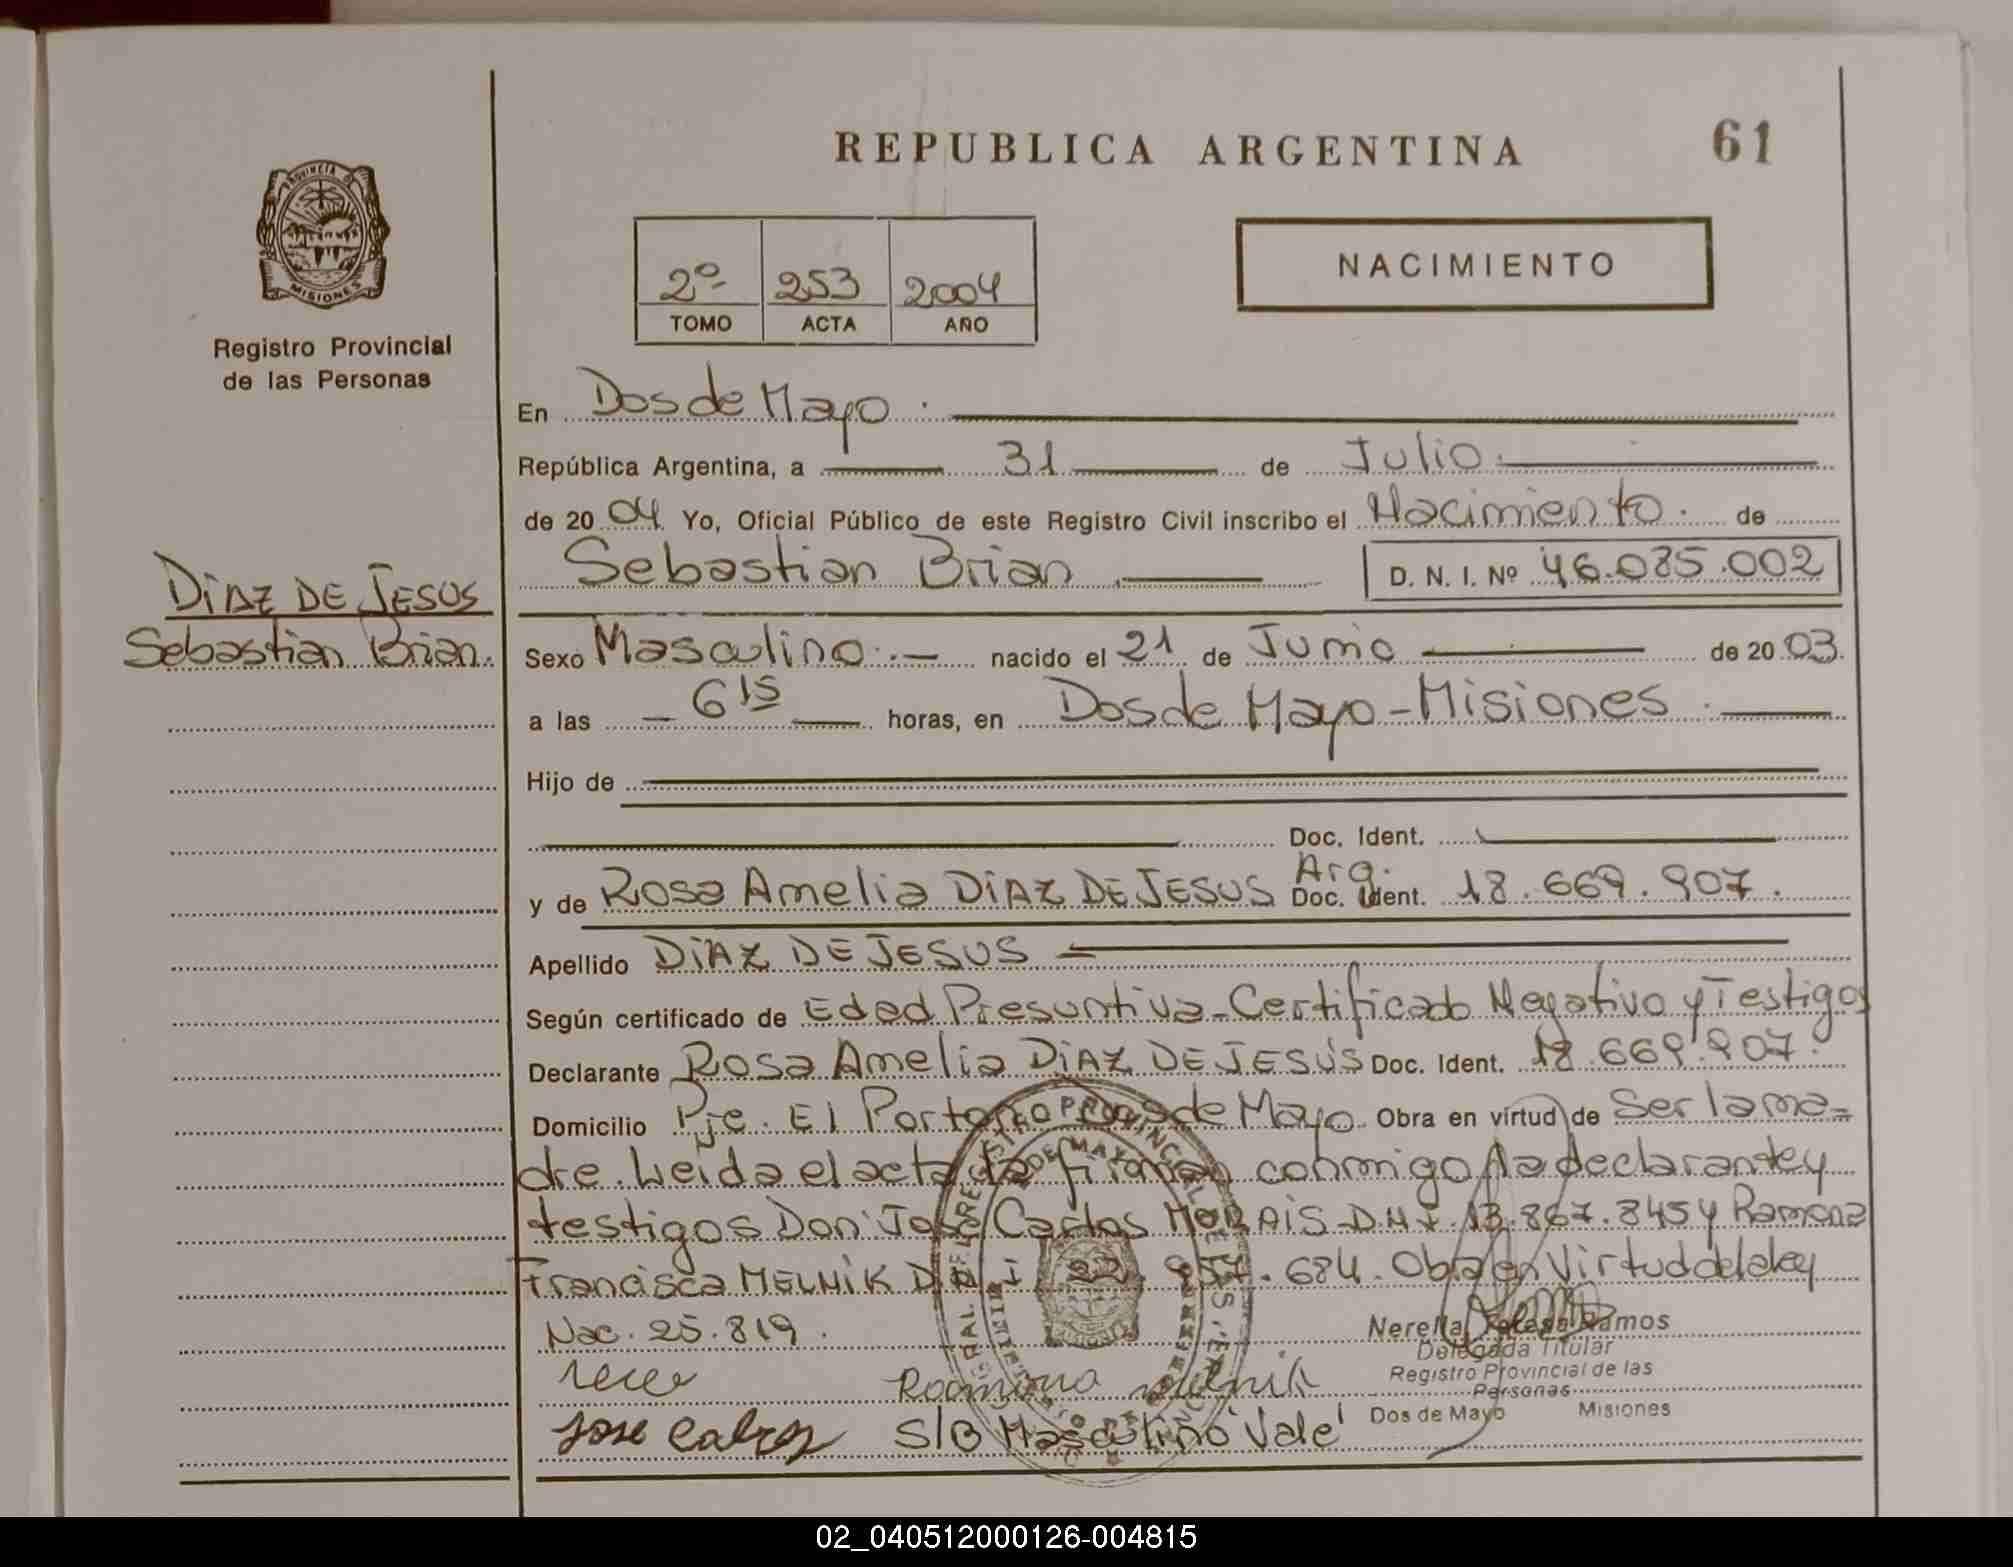 REPUBLICA ARGENTINA
61
PROVINCIA D
MISIONES
Registro Provincial
de las Personas
2º 253 2004
TOMO ACTA AÑO
NACIMIENTO
En Dos de Mayo.
República Argentina, a 31 de Julio.
de 2004 Yo, Oficial Público de este Registro Civil inscribo el Nacimiento. de
Sebastian Brian. D. N. I. Nº 46.085.002
DiAZ DE JESUS
Sebastian Brian.
Sexo Masculino.- nacido el 21 de Junio de 2003.
a las - 6 15 horas, en Dos de Mayo-Misiones.
Hijo de
Doc. Ident.
y de Rosa Amelia DiAZ DE JESUS Arg. Doc. Ident. 18.669.907.
Apellido DiAZ DE JESUS
Según certificado de Edad Presuntiva-Certificado Negativo y Testigos
Declarante Rosa Amelia DiAZ DE JESUS Doc. Ident. 18.669.907.
Domicilio Pje. El Portono Dos de Mayo. Obra en virtud de Ser la ma=
dre. Leida el acta la firman conmigo la declarante y
testigos Don: Jose Carlos MORAIS D.N.I. 13.867.845 y Ramona
Francisca MELNiK D.N.I. 22.957.684. Obra en Virtud de la ley
Nac. 25.819.
Ramona Melnik
S/B Masculino 'Vale'
Ramos
Delegada Titular
Registro Provincial de las
Personas
Dos de Mayo Misiones
02_040512000126-004815